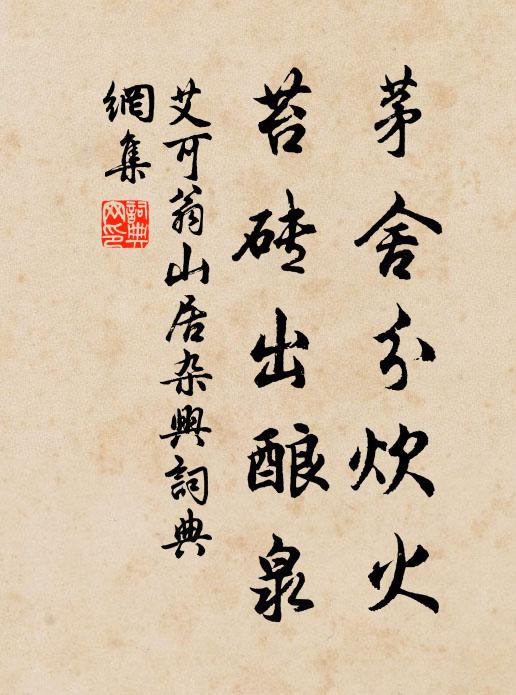 茅舍分炊火
苔砖出酿泉
艾可翁山居杂興詞典
網集
詞典
网印